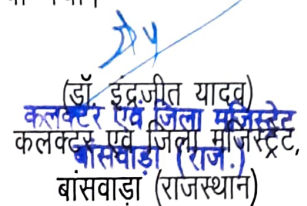 (डॉ. इंद्रजीत यादव)
कलक्टर एवं जिला मजिस्ट्रेट
कलक्टर एवं जिला मजिस्ट्रेट,
बांसवाड़ा (राज.)
बांसवाड़ा (राजस्थान)